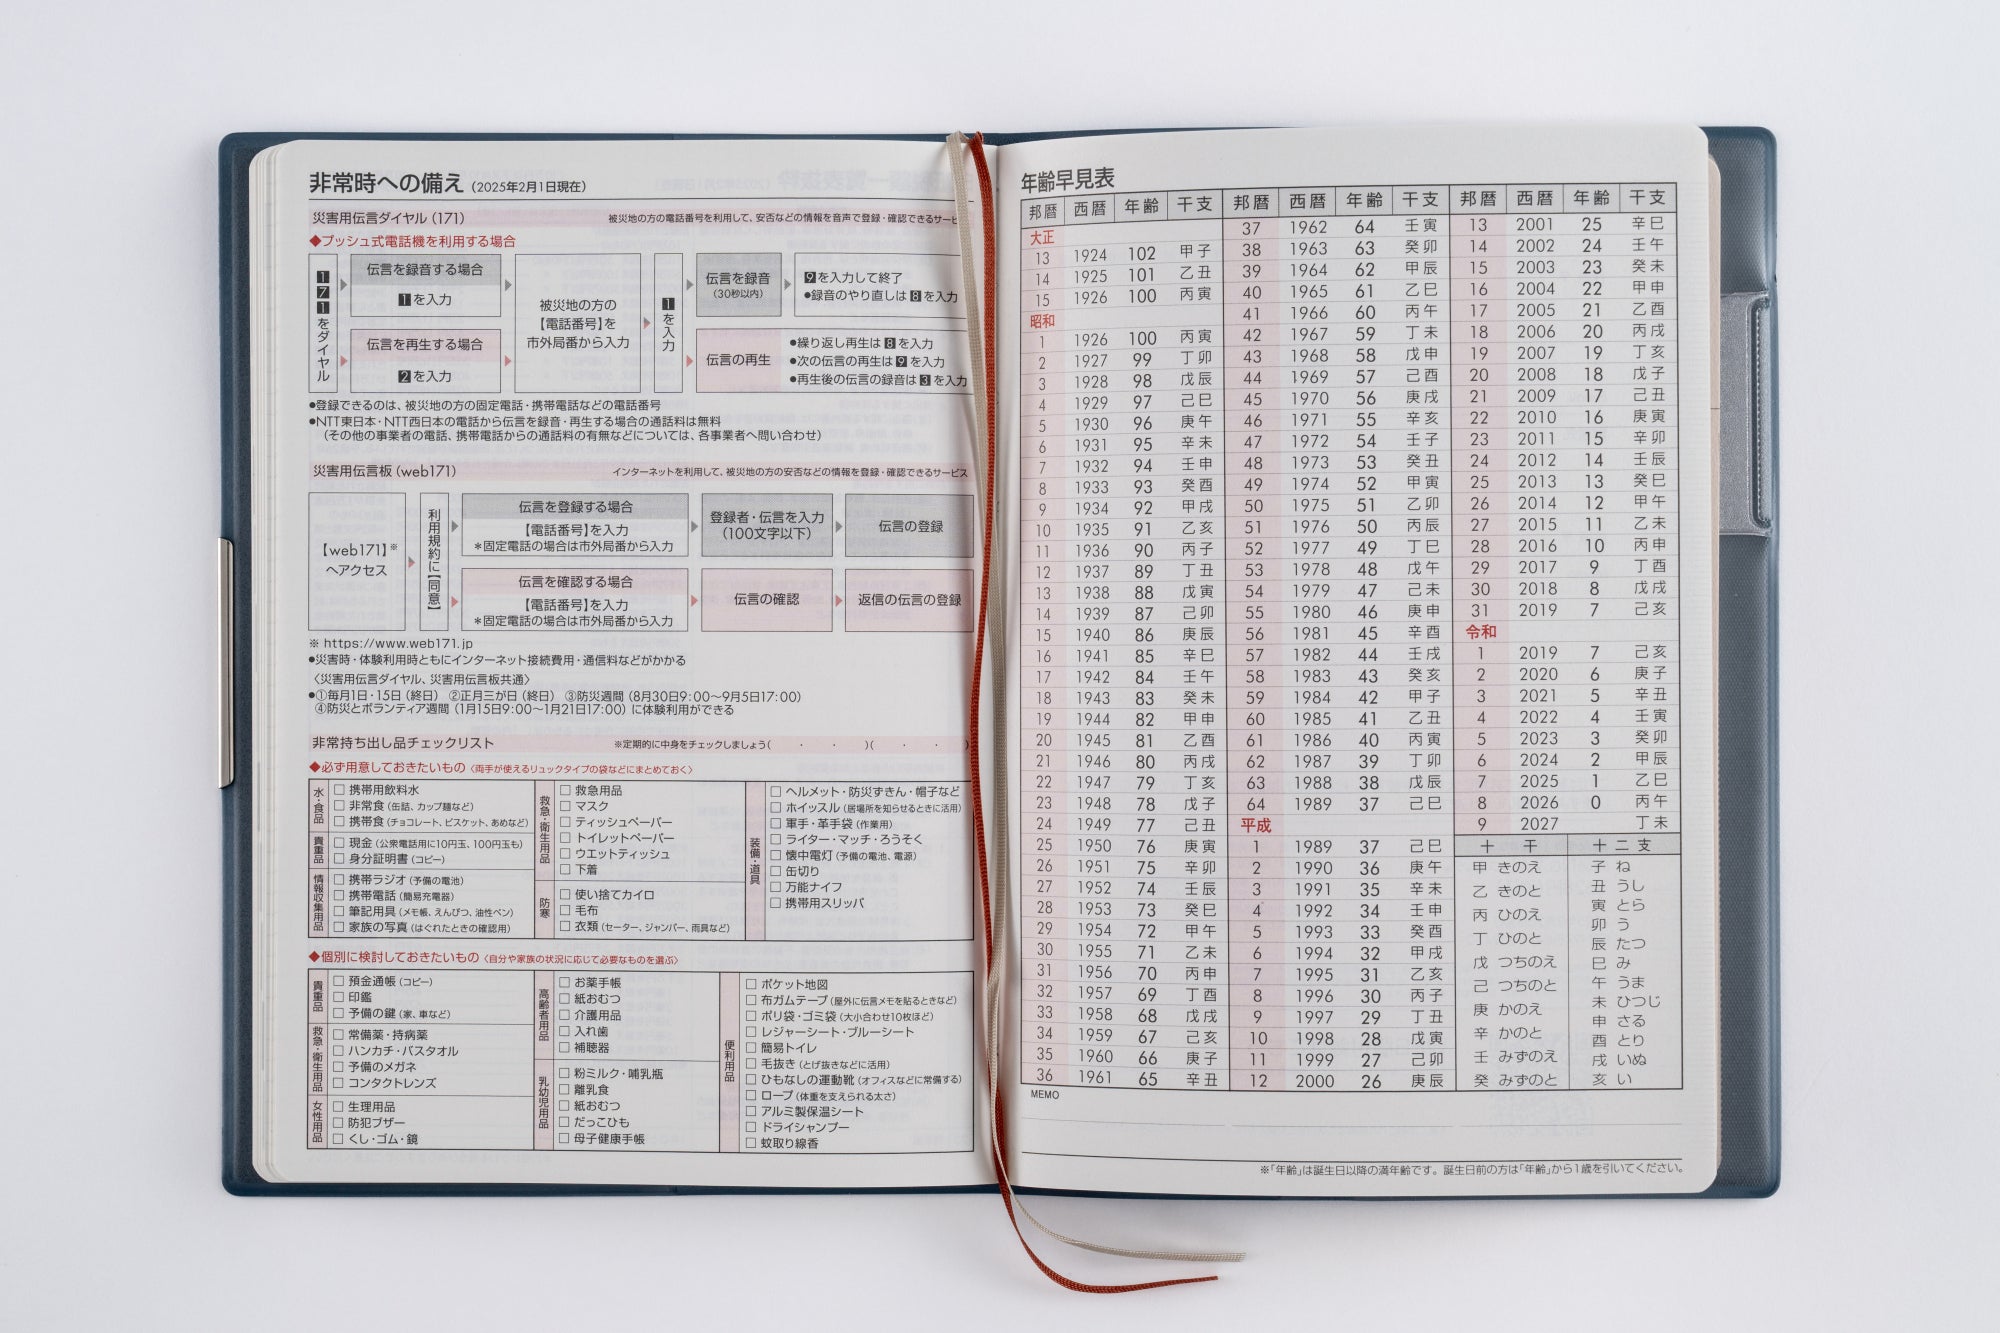 非常時への備え (2025年2月1日現在)
災害用伝言ダイヤル (171)
被災地の方の電話番号を利用して、安否などの情報を音声で登録・確認できるサービ
◆プッシュ式電話機を利用する場合
171をダイヤル
伝言を録音する場合
1を入力
伝言を再生する場合
2を入力
被災地の方の
【電話番号】を
市外局番から入力
1を入力
伝言を録音
(30秒以内)
9を入力して終了
●録音のやり直しは8を入力
伝言の再生
●繰り返し再生は8を入力
●次の伝言の再生は9を入力
●再生後の伝言の録音は3を入力
●登録できるのは、被災地の方の固定電話・携帯電話などの電話番号
●NTT東日本・NTT西日本の電話から伝言を録音・再生する場合の通話料は無料
(その他の事業者の電話、携帯電話からの通話料の有無などについては、各事業者へ問い合わせ)
災害用伝言板 (web171)
インターネットを利用して、被災地の方の安否などの情報を登録・確認できるサービス
【web171】※
へアクセス
利用規約に【同意】
伝言を登録する場合
【電話番号】を入力
＊固定電話の場合は市外局番から入力
登録者・伝言を入力
(100文字以下)
伝言の登録
伝言を確認する場合
【電話番号】を入力
＊固定電話の場合は市外局番から入力
伝言の確認
返信の伝言の登録
※ https://www.web171.jp
●災害時・体験利用時ともにインターネット接続費用・通信料などがかかる
〈災害用伝言ダイヤル、災害用伝言板共通〉
●①毎月1日・15日 (終日) ②正月三が日 (終日) ③防災週間 (8月30日9:00〜9月5日17:00)
④防災とボランティア週間 (1月15日9:00〜1月21日17:00) に体験利用ができる
非常持ち出し品チェックリスト
※定期的に中身をチェックしましょう( ・ ・ )( ・ ・ )
◆必ず用意しておきたいもの 〈両手が使えるリュックタイプの袋などにまとめておく〉
水・食品
□ 携帯用飲料水
□ 非常食 (缶詰、カップ麺など)
□ 携帯食 (チョコレート、ビスケット、あめなど)
貴重品
□ 現金 (公衆電話用に10円玉、100円玉も)
□ 身分証明書 (コピー)
情報収集用品
□ 携帯ラジオ (予備の電池)
□ 携帯電話 (簡易充電器)
□ 筆記用具 (メモ帳、えんぴつ、油性ペン)
□ 家族の写真 (はぐれたときの確認用)
救急・衛生用品
□ 救急用品
□ マスク
□ ティッシュペーパー
□ トイレットペーパー
□ ウエットティッシュ
□ 下着
防寒
□ 使い捨てカイロ
□ 毛布
□ 衣類 (セーター、ジャンパー、雨具など)
装備・道具
□ ヘルメット・防災ずきん・帽子など
□ ホイッスル (居場所を知らせるときに活用)
□ 軍手・革手袋 (作業用)
□ ライター・マッチ・ろうそく
□ 懐中電灯 (予備の電池、電源)
□ 缶切り
□ 万能ナイフ
□ 携帯用スリッパ
◆個別に検討しておきたいもの 〈自分や家族の状況に応じて必要なものを選ぶ〉
貴重品
□ 預金通帳 (コピー)
□ 印鑑
□ 予備の鍵 (家、車など)
救急・衛生用品
□ 常備薬・持病薬
□ ハンカチ・バスタオル
□ 予備のメガネ
□ コンタクトレンズ
女性用品
□ 生理用品
□ 防犯ブザー
□ くし・ゴム・鏡
高齢者用品
□ お薬手帳
□ 紙おむつ
□ 介護用品
□ 入れ歯
□ 補聴器
乳幼児用品
□ 粉ミルク・哺乳瓶
□ 離乳食
□ 紙おむつ
□ だっこひも
□ 母子健康手帳
便利用品
□ ポケット地図
□ 布ガムテープ (屋外に伝言メモを貼るときなど)
□ ポリ袋・ゴミ袋 (大小合わせ10枚ほど)
□ レジャーシート・ブルーシート
□ 簡易トイレ
□ 毛抜き (とげ抜きなどに活用)
□ ひもなしの運動靴 (オフィスなどに常備する)
□ ロープ (体重を支えられる太さ)
□ アルミ製保温シート
□ ドライシャンプー
□ 蚊取り線香
年齢早見表
邦暦 西暦 年齢 干支
大正
13 1924 102 甲子
14 1925 101 乙丑
15 1926 100 丙寅
昭和
1 1926 100 丙寅
2 1927 99 丁卯
3 1928 98 戊辰
4 1929 97 己巳
5 1930 96 庚午
6 1931 95 辛未
7 1932 94 壬申
8 1933 93 癸酉
9 1934 92 甲戌
10 1935 91 乙亥
11 1936 90 丙子
12 1937 89 丁丑
13 1938 88 戊寅
14 1939 87 己卯
15 1940 86 庚辰
16 1941 85 辛巳
17 1942 84 壬午
18 1943 83 癸未
19 1944 82 甲申
20 1945 81 乙酉
21 1946 80 丙戌
22 1947 79 丁亥
23 1948 78 戊子
24 1949 77 己丑
25 1950 76 庚寅
26 1951 75 辛卯
27 1952 74 壬辰
28 1953 73 癸巳
29 1954 72 甲午
30 1955 71 乙未
31 1956 70 丙申
32 1957 69 丁酉
33 1958 68 戊戌
34 1959 67 己亥
35 1960 66 庚子
36 1961 65 辛丑
邦暦 西暦 年齢 干支
37 1962 64 壬寅
38 1963 63 癸卯
39 1964 62 甲辰
40 1965 61 乙巳
41 1966 60 丙午
42 1967 59 丁未
43 1968 58 戊申
44 1969 57 己酉
45 1970 56 庚戌
46 1971 55 辛亥
47 1972 54 壬子
48 1973 53 癸丑
49 1974 52 甲寅
50 1975 51 乙卯
51 1976 50 丙辰
52 1977 49 丁巳
53 1978 48 戊午
54 1979 47 己未
55 1980 46 庚申
56 1981 45 辛酉
57 1982 44 壬戌
58 1983 43 癸亥
59 1984 42 甲子
60 1985 41 乙丑
61 1986 40 丙寅
62 1987 39 丁卯
63 1988 38 戊辰
64 1989 37 己巳
平成
1 1989 37 己巳
2 1990 36 庚午
3 1991 35 辛未
4 1992 34 壬申
5 1993 33 癸酉
6 1994 32 甲戌
7 1995 31 乙亥
8 1996 30 丙子
9 1997 29 丁丑
10 1998 28 戊寅
11 1999 27 己卯
12 2000 26 庚辰
邦暦 西暦 年齢 干支
13 2001 25 辛巳
14 2002 24 壬午
15 2003 23 癸未
16 2004 22 甲申
17 2005 21 乙酉
18 2006 20 丙戌
19 2007 19 丁亥
20 2008 18 戊子
21 2009 17 己丑
22 2010 16 庚寅
23 2011 15 辛卯
24 2012 14 壬辰
25 2013 13 癸巳
26 2014 12 甲午
27 2015 11 乙未
28 2016 10 丙申
29 2017 9 丁酉
30 2018 8 戊戌
31 2019 7 己亥
令和
1 2019 7 己亥
2 2020 6 庚子
3 2021 5 辛丑
4 2022 4 壬寅
5 2023 3 癸卯
6 2024 2 甲辰
7 2025 1 乙巳
8 2026 0 丙午
9 2027 丁未
十干
甲 きのえ
乙 きのと
丙 ひのえ
丁 ひのと
戊 つちのえ
己 つちのと
庚 かのえ
辛 かのと
壬 みずのえ
癸 みずのと
十二支
子 ね
丑 うし
寅 とら
卯 う
辰 たつ
巳 み
午 うま
未 ひつじ
申 さる
酉 とり
戌 いぬ
亥 い
MEMO
※「年齢」は誕生日以降の満年齢です。誕生日前の方は「年齢」から1歳を引いてください。